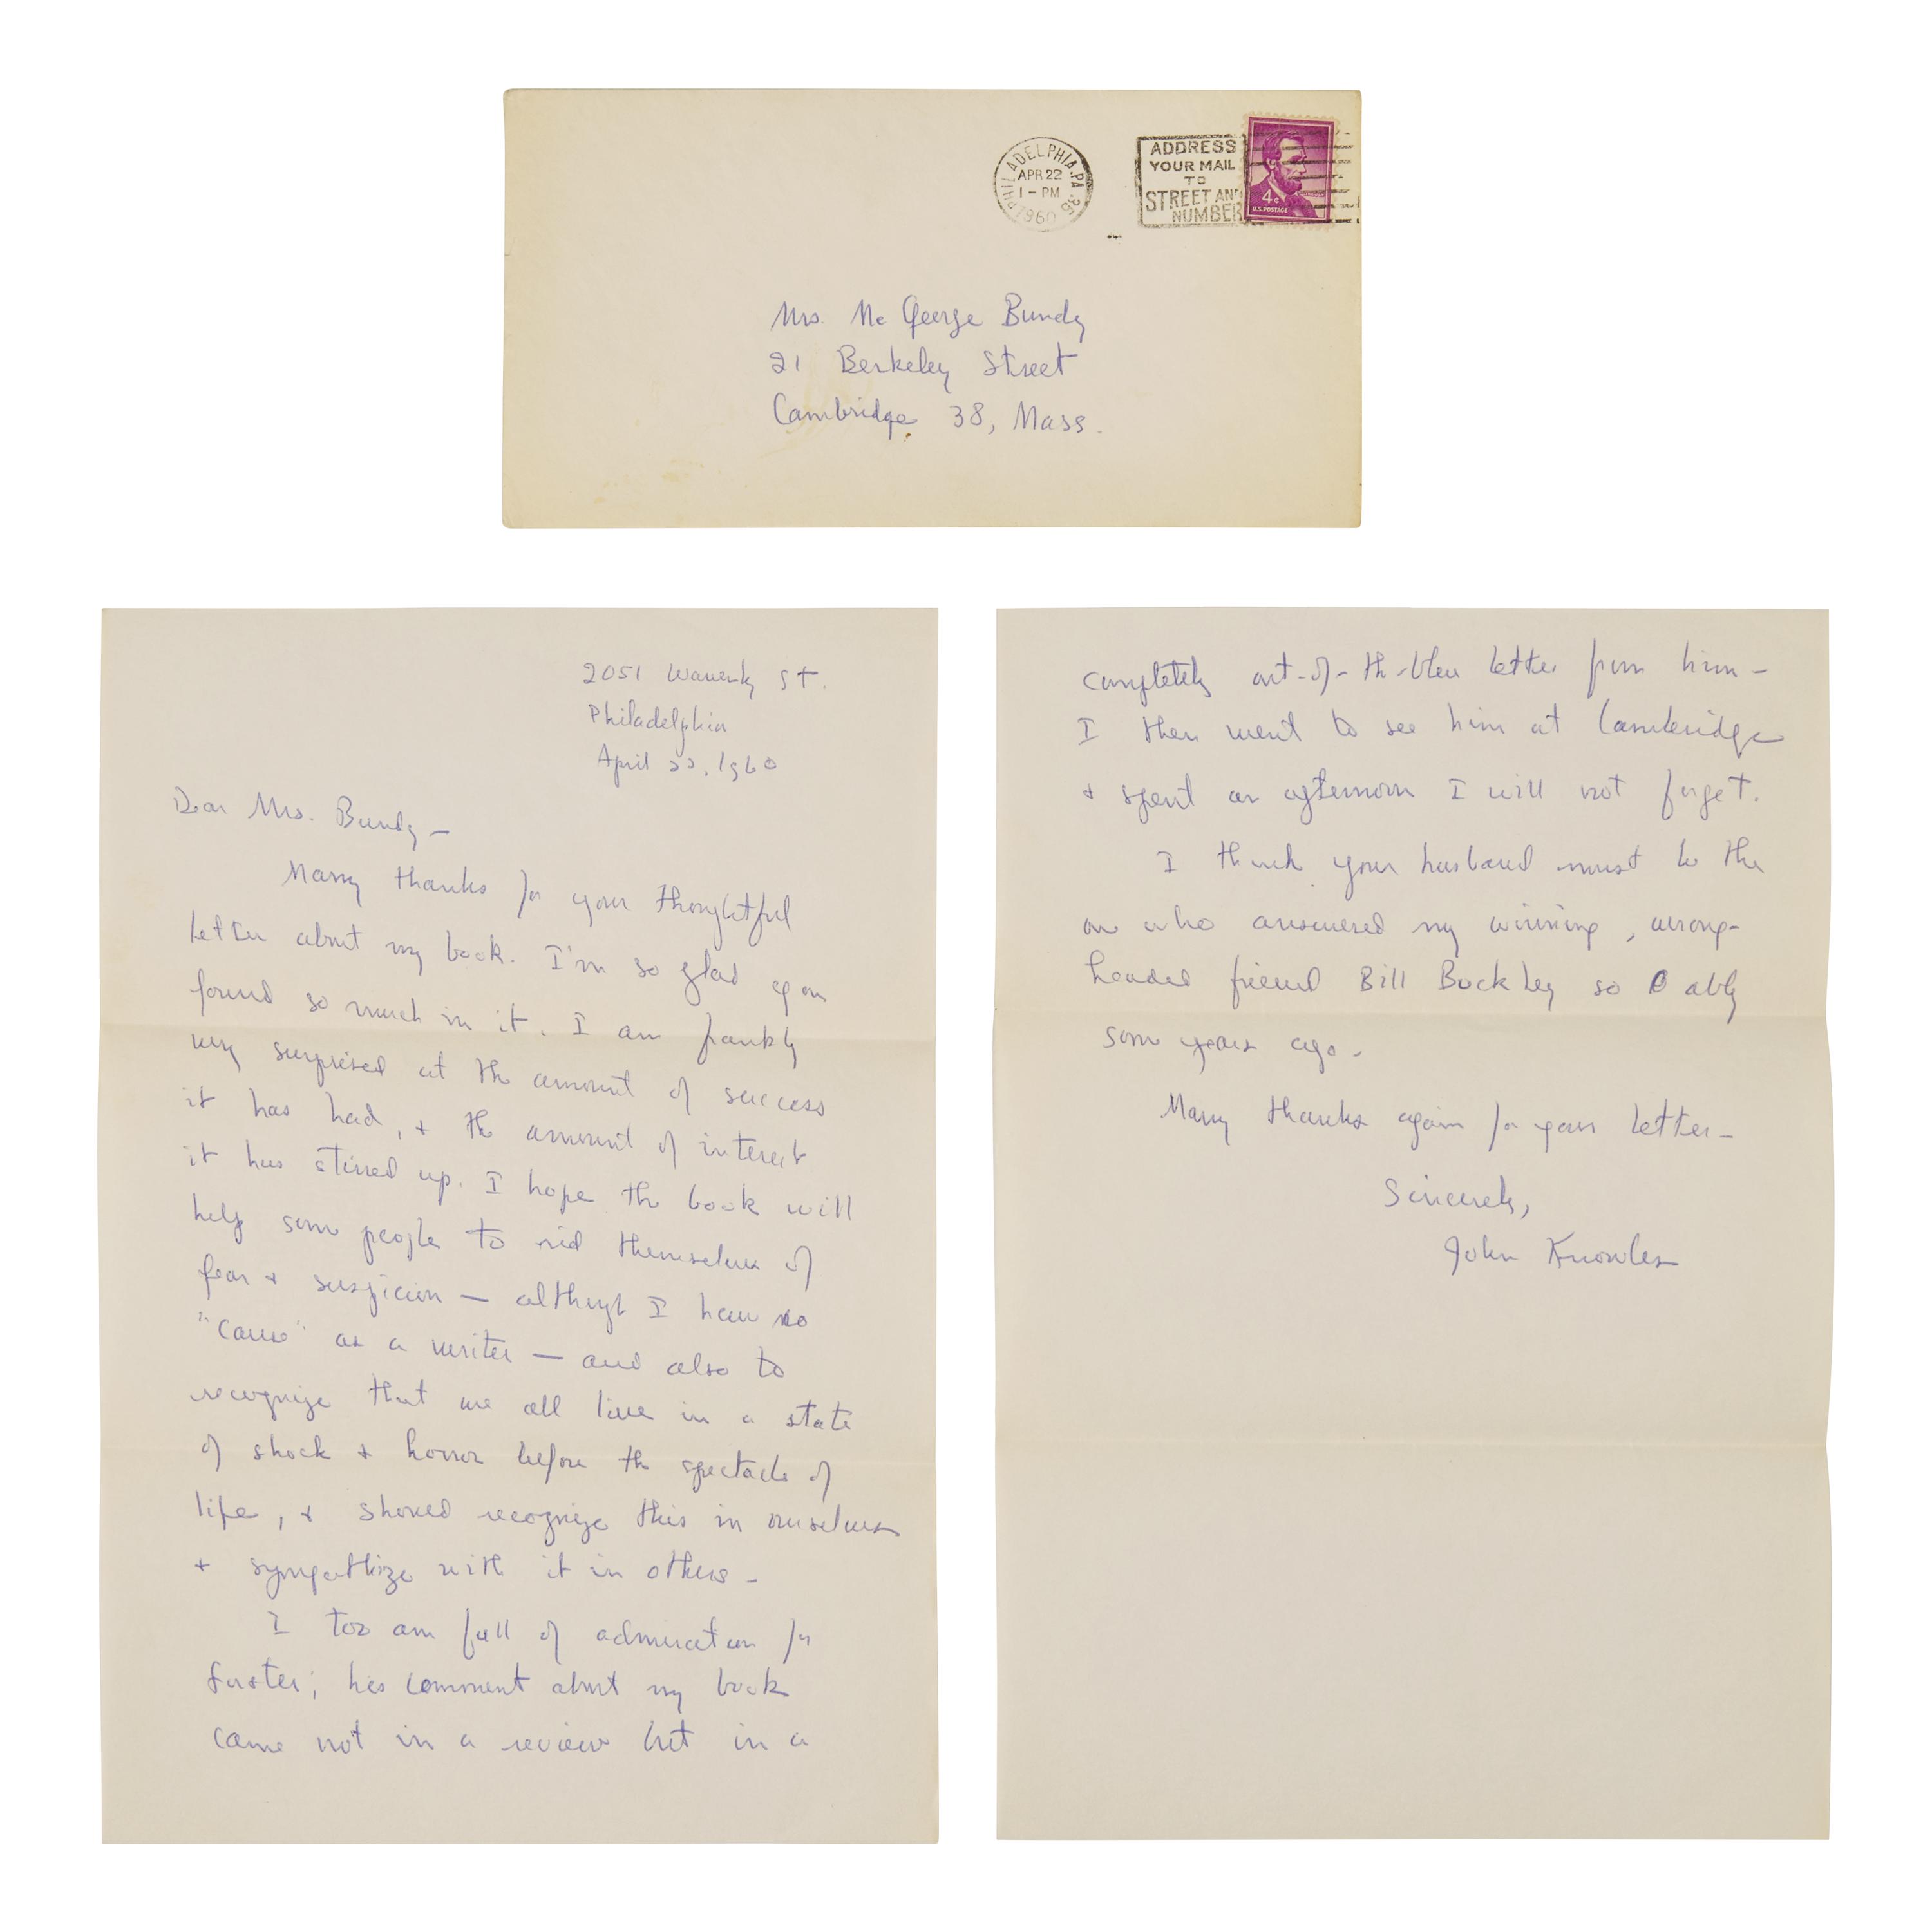 PHILADELPHIA, PA. 35
APR 22
1 - PM
1960
ADDRESS
YOUR MAIL
TO
STREET AND
NUMBER
4¢
U.S. POSTAGE
Mrs. McGeorge Bundy
21 Berkeley Street
Cambridge 38, Mass.
2051 Waverly St.
Philadelphia
April 22, 1960
Dear Mrs. Bundy —
Many thanks for your thoughtful
letter about my book. I'm so glad you
found so much in it. I am frankly
very surprised at the amount of success
it has had, + the amount of interest
it has stirred up. I hope the book will
help some people to rid themselves of
fear + suspicion — although I have no
"cause" as a writer — and also to
recognize that we all live in a state
of shock + horror before the spectacle of
life, + should recognize this in ourselves
+ sympathize with it in others –
I too am full of admiration for
Forster; his comment about my book
came not in a review but in a
completely out-of-the-bleu letter from him –
I then went to see him at Cambridge
+ spent an afternoon I will not forget.
I think your husband must be the
one who answered my winning, wrong-
headed friend Bill Buckley so ably
some years ago.
Many thanks again for your letter –
Sincerely,
John Knowles